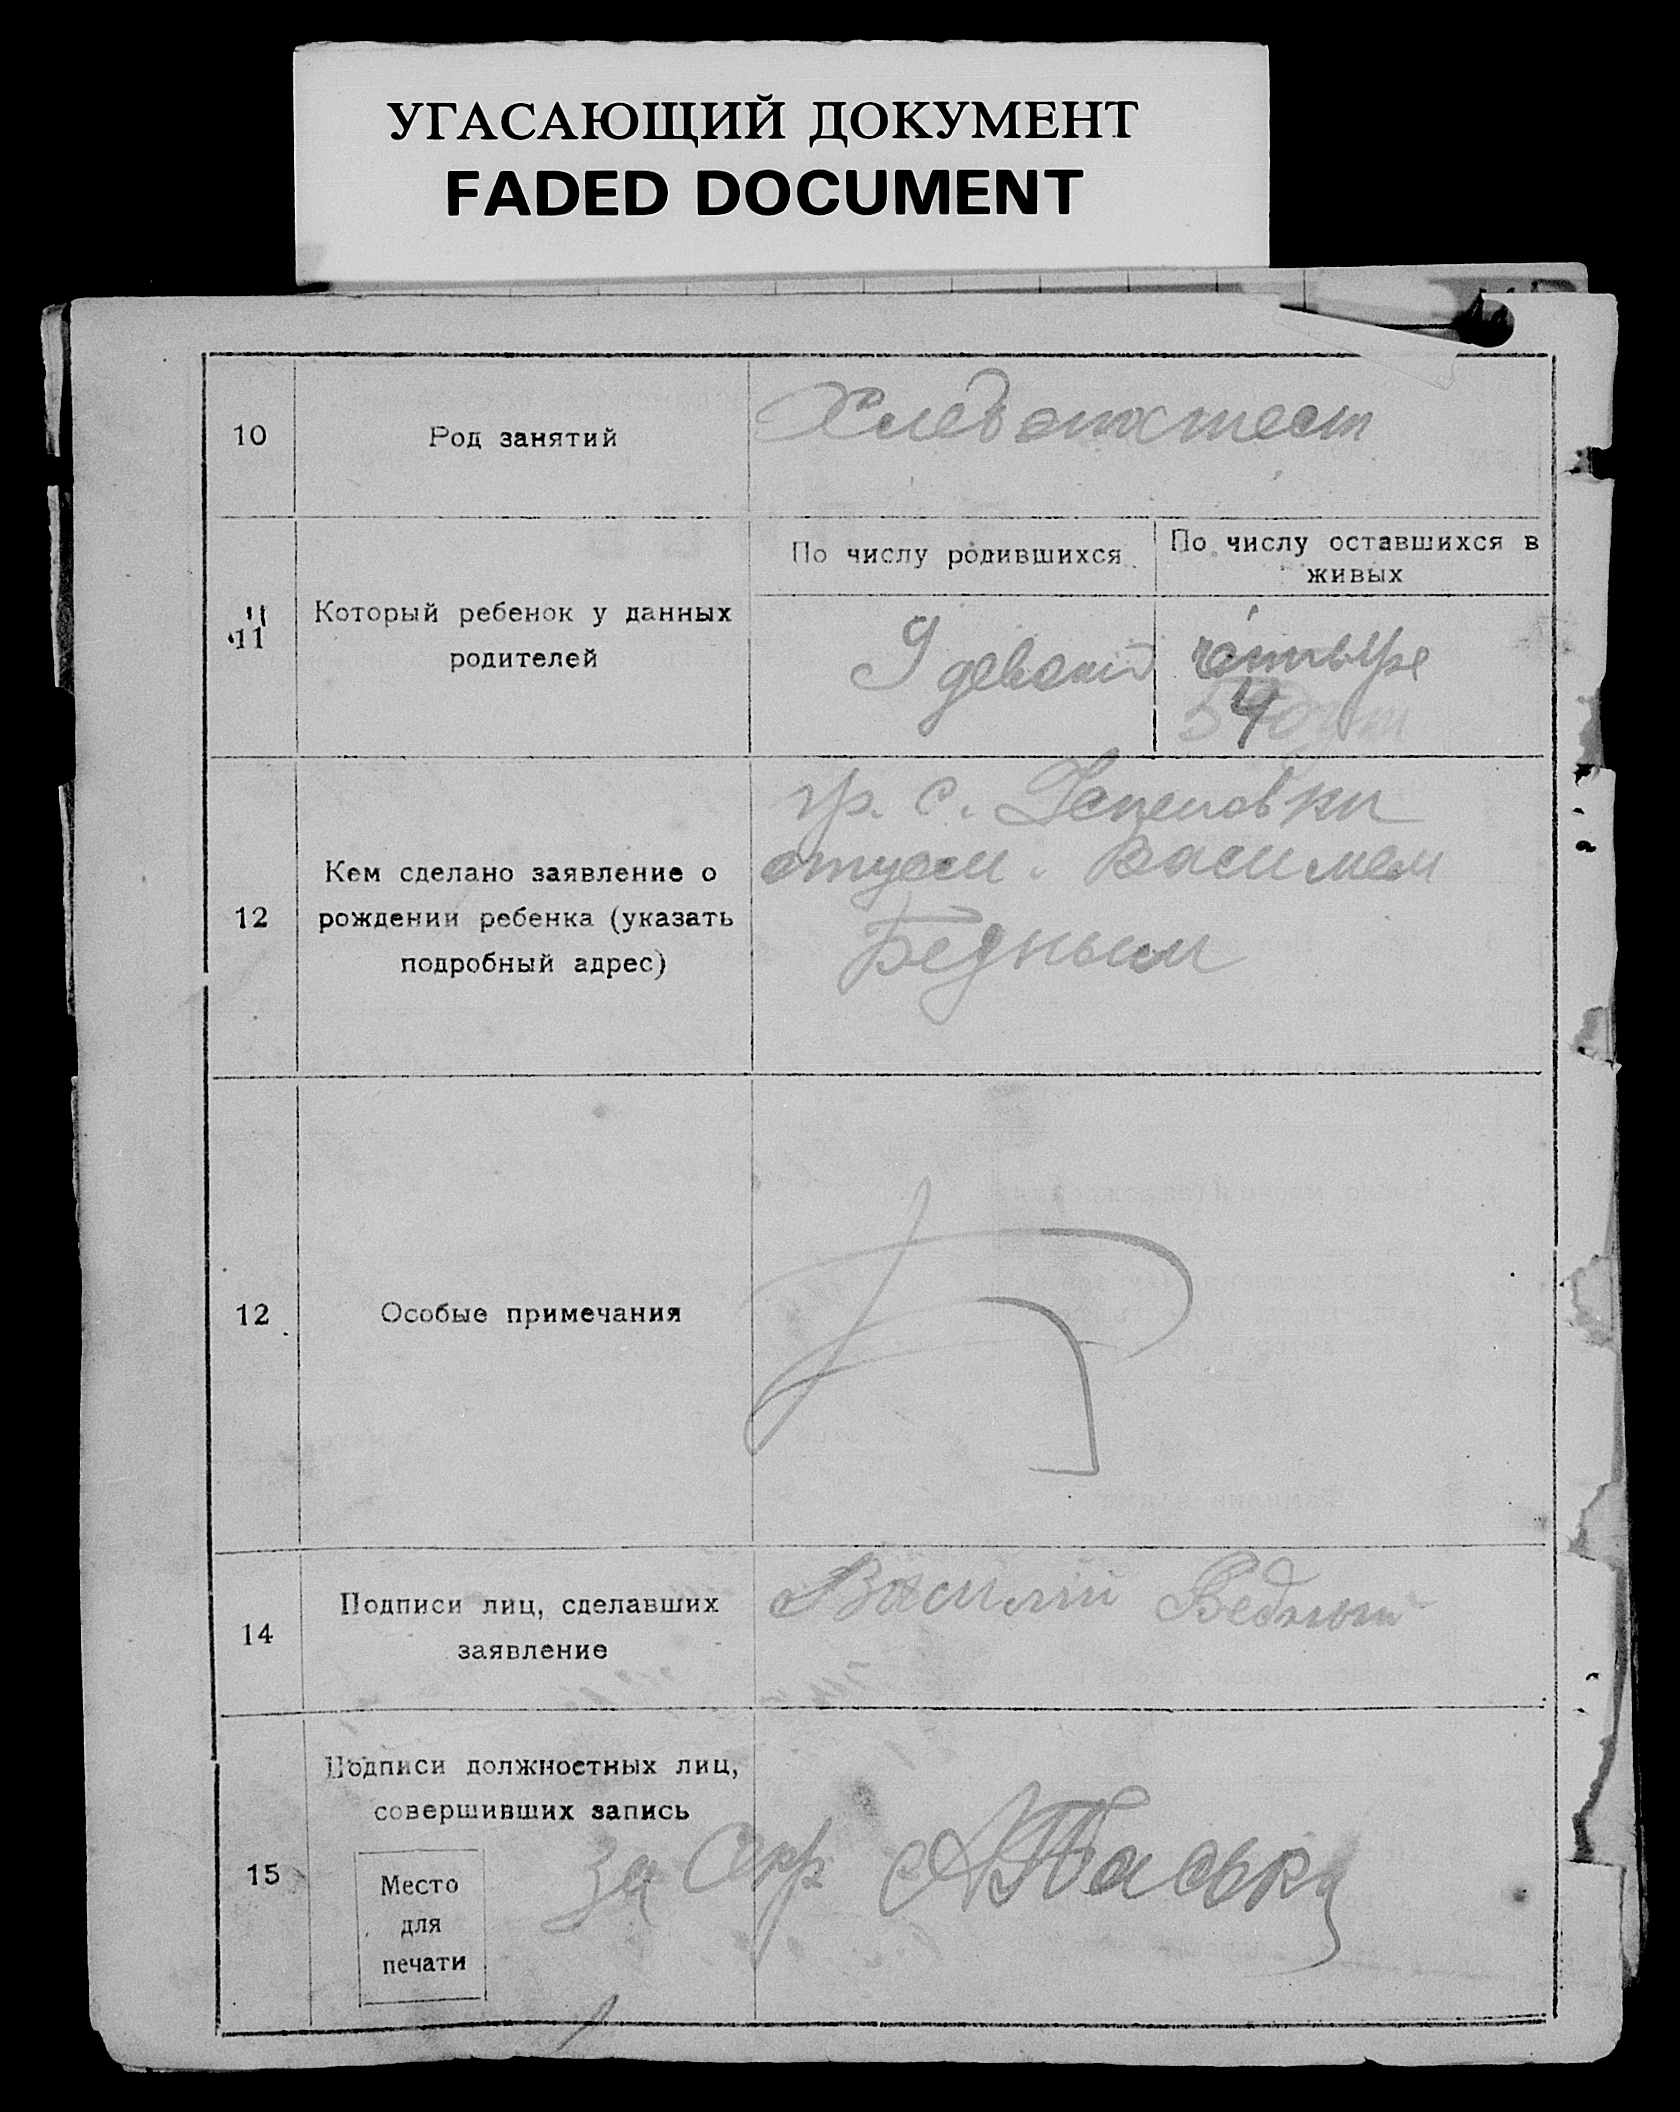 УГАСАЮЩИЙ ДОКУМЕНТ
FADED DOCUMENT
10
Род занятий
11
11
Который ребенок у данных
родителей
По числу родившихся
По числу оставшихся в
живых
9
четыре
4
12
Кем сделано заявление о
рождении ребенка (указать
подробный адрес)
гр. с.
отцем. Василием
Бедным
12
Особые примечания
14
Подписи лиц, сделавших
заявление
Василий Бедный
15
Подписи должностных лиц,
совершивших запись
Место
для
печати
за Секр